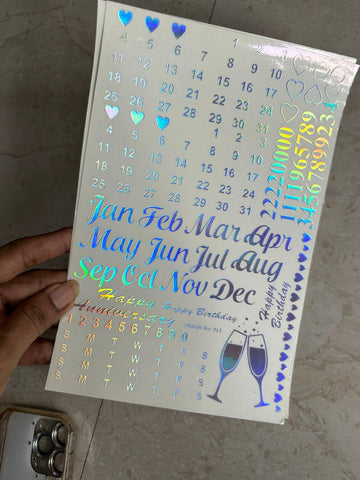 1 2 3
4 5 6 7 8 9 10
11 12 13 14 15 16 17
18 19 20 21 22 23 24
25 26 27 28 29 30 31
1 2 3
4 5 6 7 8 9 10
11 12 13 14 15 16 17
18 19 20 21 22 23 24
25 26 27 28 29 30 31
22220000
1111965789
34567899234
Jan Feb Mar Apr
May Jun Jul Aug
Sep Oct Nov Dec
Happy
Anniversary
Happy Birthday
Happy
Birthday
1 2 3 4 5 6 7 8 9 0
S M T W T F S
S M T W T F S
S M T W T F S
S M T W T F S